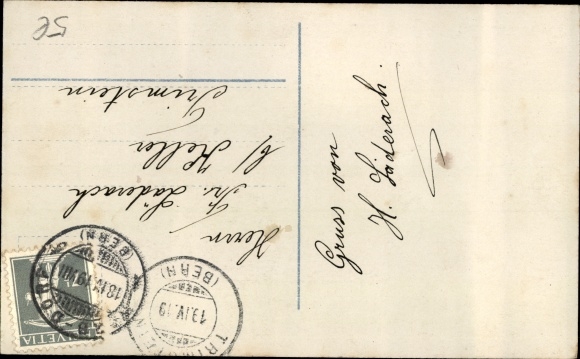 5€
Herrn
Fr. Läderach
b/ Keller
Trimstein
Gruss von
H. Läderach.
HELVETIA
DORF
(BERN)
18.IV.19
TRIMSTEIN
(BERN)
19.IV.19